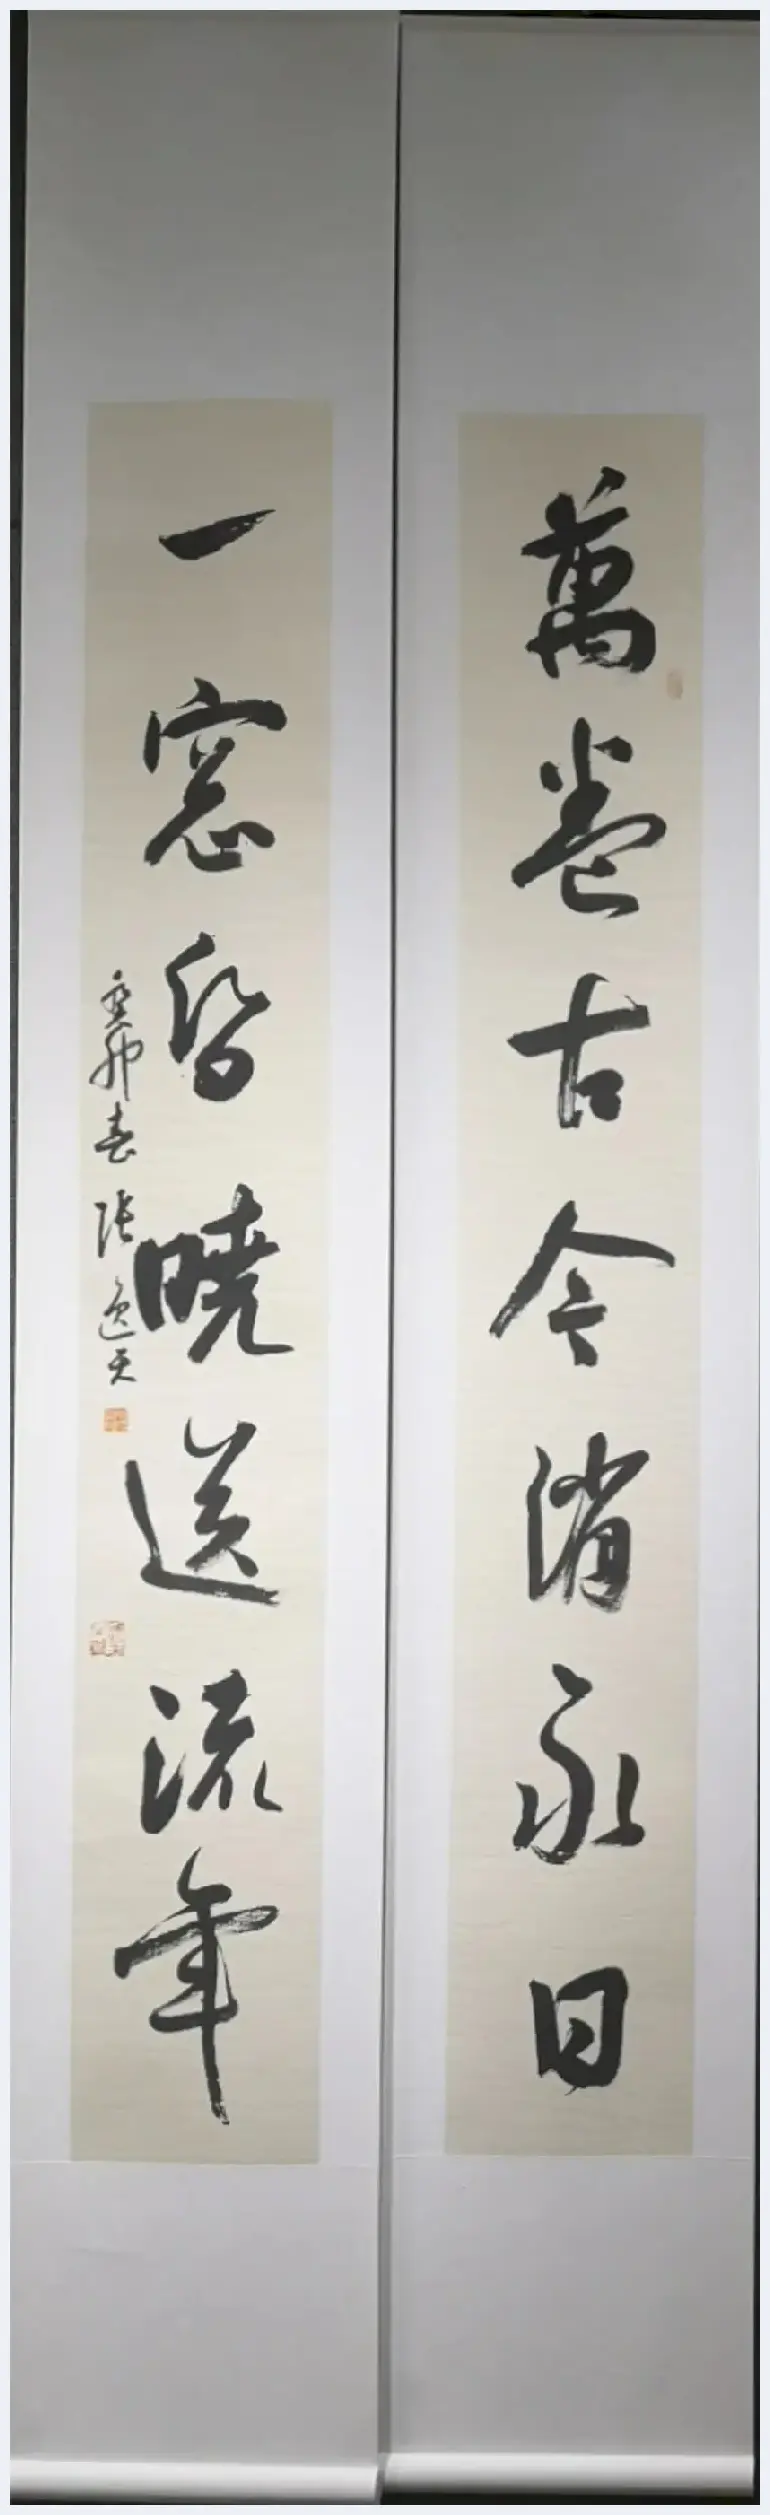 萬卷古今消永日
一窓昏曉送流年
癸卯春 張逸天